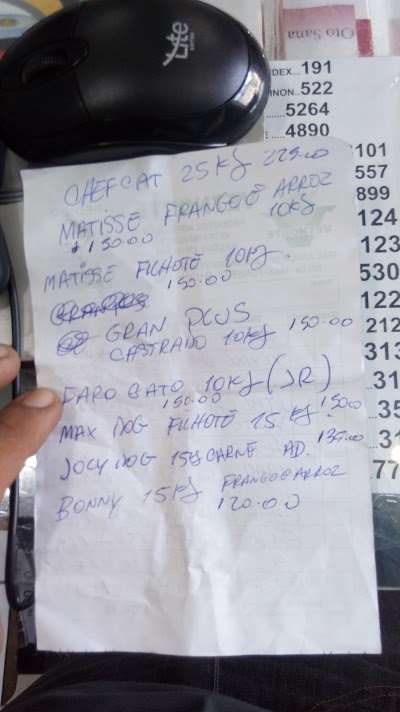 Lite
Oto Sana
INDEX...191
INON...522
......5264
4890
101
557
899
124
123
530
122
212
313
.31
.35
.31
77
CHEFCAT 25Kg 229.00
MATISSE FRANGO E ARROZ
10Kg
$150.00
MATISSE FILHOTE 10Kg.
150.00
GRAN PLUS
CASTRADO 10Kg 150.00
FARO GATO 10Kg (JR)
150.00
MAX DOG FILHOTE 15Kg. 150.00
JOCY DOG 15Kg CARNE AD. 135.00
BONNY 15Kg FRANGO E ARROZ
120.00